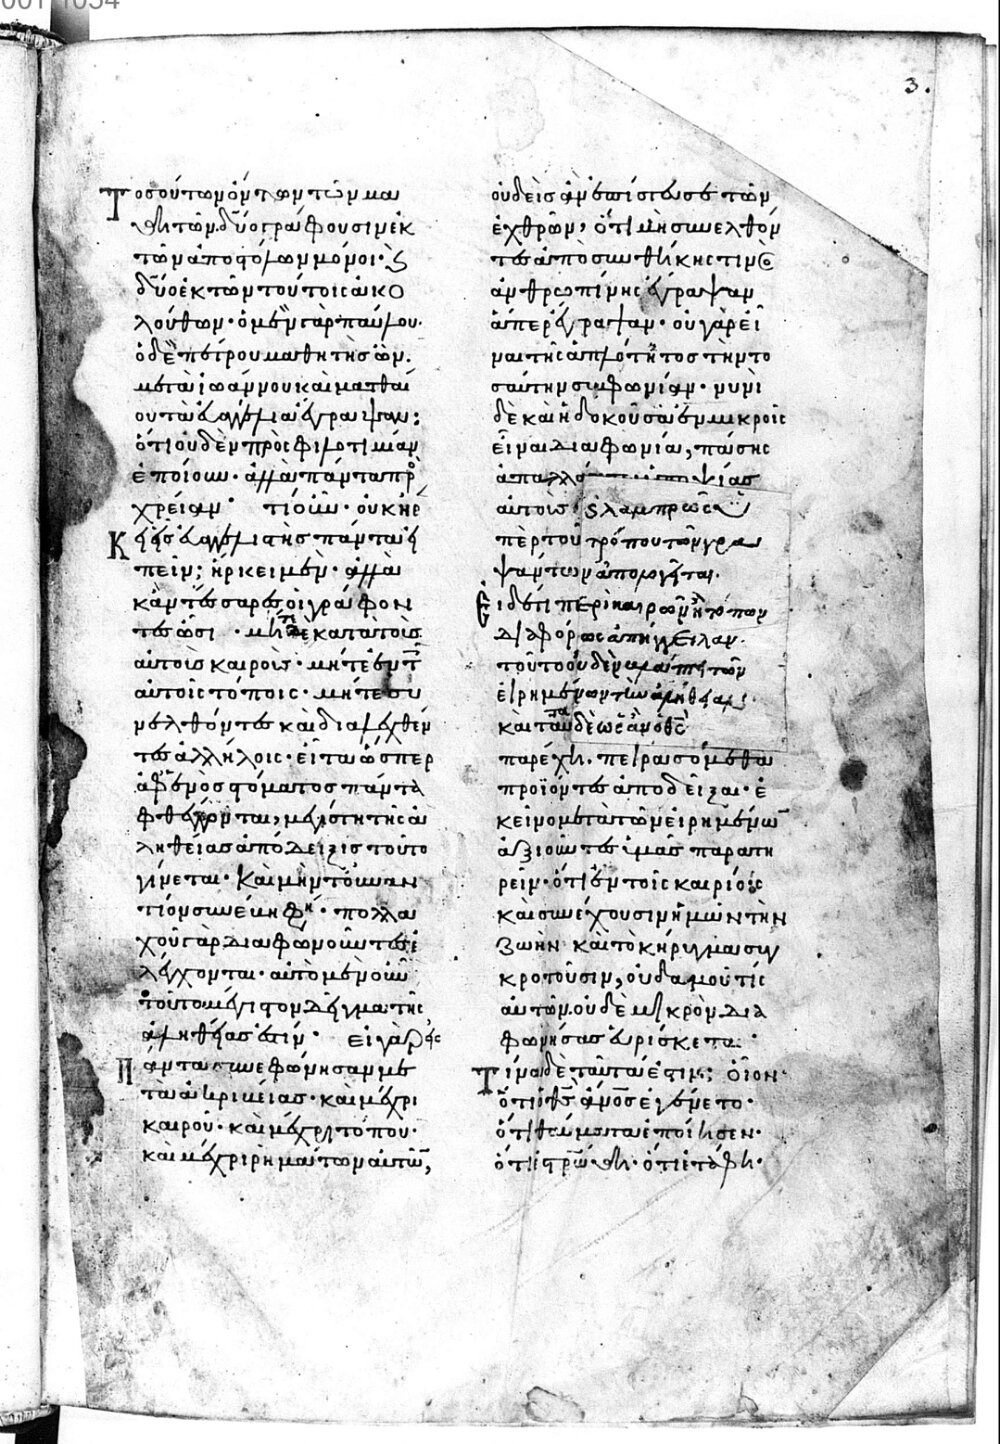 3.
Τοσούτων ὄντων τῶν μα
θητῶν. δύο γράφουσιν ἐκ
τῶν ἀποστόλων μόνοι· ϗ
δύο ἐκ τῶν τούτοις ἀκο
λούθων· ὁ μὲν γὰρ παύλου·
ὁ δὲ πέτρου μαθητὴς ὤν.
μετὰ ἰωάννου καὶ ματθαί
ου τὰ εὐαγγέλια ἔγραψαν;
ὅτι οὐδὲν πρὸς φιλοτιμίαν
ἐποίουν· ἀλλὰ πάντα πρὸ
χρείαν· τί οὖν· οὐκ ἤρ
Κει εἷς εὐαγγελιστὴς πάντα εἰ
πεῖν; ἤρκει μέν· ἀλλὰ
κἂν τέσσαρες οἱ γράφον
τες ὦσι· μήτε κατὰ τοὺς
αὐτοὺς καιροὺς· μήτε ἐν τ
αὐτοῖς τόποις· μήτε συ
νελθόντες καὶ διαλεχθέν
τες ἀλλήλοις· εἶτα ὥσπερ
ἀφ' ἑνὸς στόματος πάντα
φθέγγονται, μεγίστη τῆς ἀ
ληθείας ἀπόδειξις τοῦτο
γίνεται· Καὶ μὴν τοὐναν
τίον συνέβη φη· πολλα
χοῦ γὰρ διαφωνοῦντες ἐ
λέγχονται· αὐτὸ μὲν οὖν
τοῦτο μέγιστον δεῖγμα τῆς
ἀληθείας ἐστίν· εἰ γὰρ
Πάντα συνεφώνησαν με
τὰ ἀκριβείας· καὶ μέχρι
καιροῦ· καὶ μέχρι τόπου·
καὶ μέχρι ῥημάτων αὐτῶν,
οὐδεὶς ἂν ἐπίστευσε τῶν
ἐχθρῶν, ὅτι μὴ συνελθόν
τες ἀπὸ συνθήκης τινὸς
ἀνθρωπίνης ἔγραψαν
ἅπερ ἔγραψαν· οὐ γὰρ εἶ
ναι τῆς ἁπλότητος τὴν το
σαύτην συμφωνίαν· νυνὶ
δὲ καὶ ἡ δοκοῦσα ἐν μικροῖς
εἶναι διαφωνία, πάσης
ἀπαλλάττει ὑποψίας
αὐτοὺς ϗ λαμπρῶς ὑ
πὲρ τοῦ τρόπου τῶν γρα
ψάντων ἀπολογεῖται.
Εἰ δέ τι περὶ καιρῶν ἢ τόπων
διαφόρως ἀπήγγειλαν·
τοῦτο οὐδὲν βλάπτει τῶν
εἰρημένων τὴν ἀλήθειαν·
καὶ ταῦτα δὲ ὡς ἂν ὁ θς
παρέχῃ· πειρασόμεθα
προϊόντες ἀποδεῖξαι· ἐ
κεῖνο μετὰ τῶν εἰρημένων
ἀξιοῦντες ὑμᾶς παρατη
ρεῖν· ὅτι ἐν τοῖς καιρίοις
καὶ συνέχουσιν ἡμῶν τὴν
ζωὴν καὶ τὸ κήρυγμα συγ
κροτοῦσιν, οὐδαμοῦ τις
αὐτῶν. οὐδὲ μικρὸν δια
φωνήσας εὑρίσκεται·
Τίνα δὲ ταῦτα ἐστιν; οἷον·
ὅτι ὁ θς ἄνος ἐγένετο·
ὅτι θαύματα ἐποίησεν·
ὅτι ἐστρώθη· ὅτι ἐτάφη·